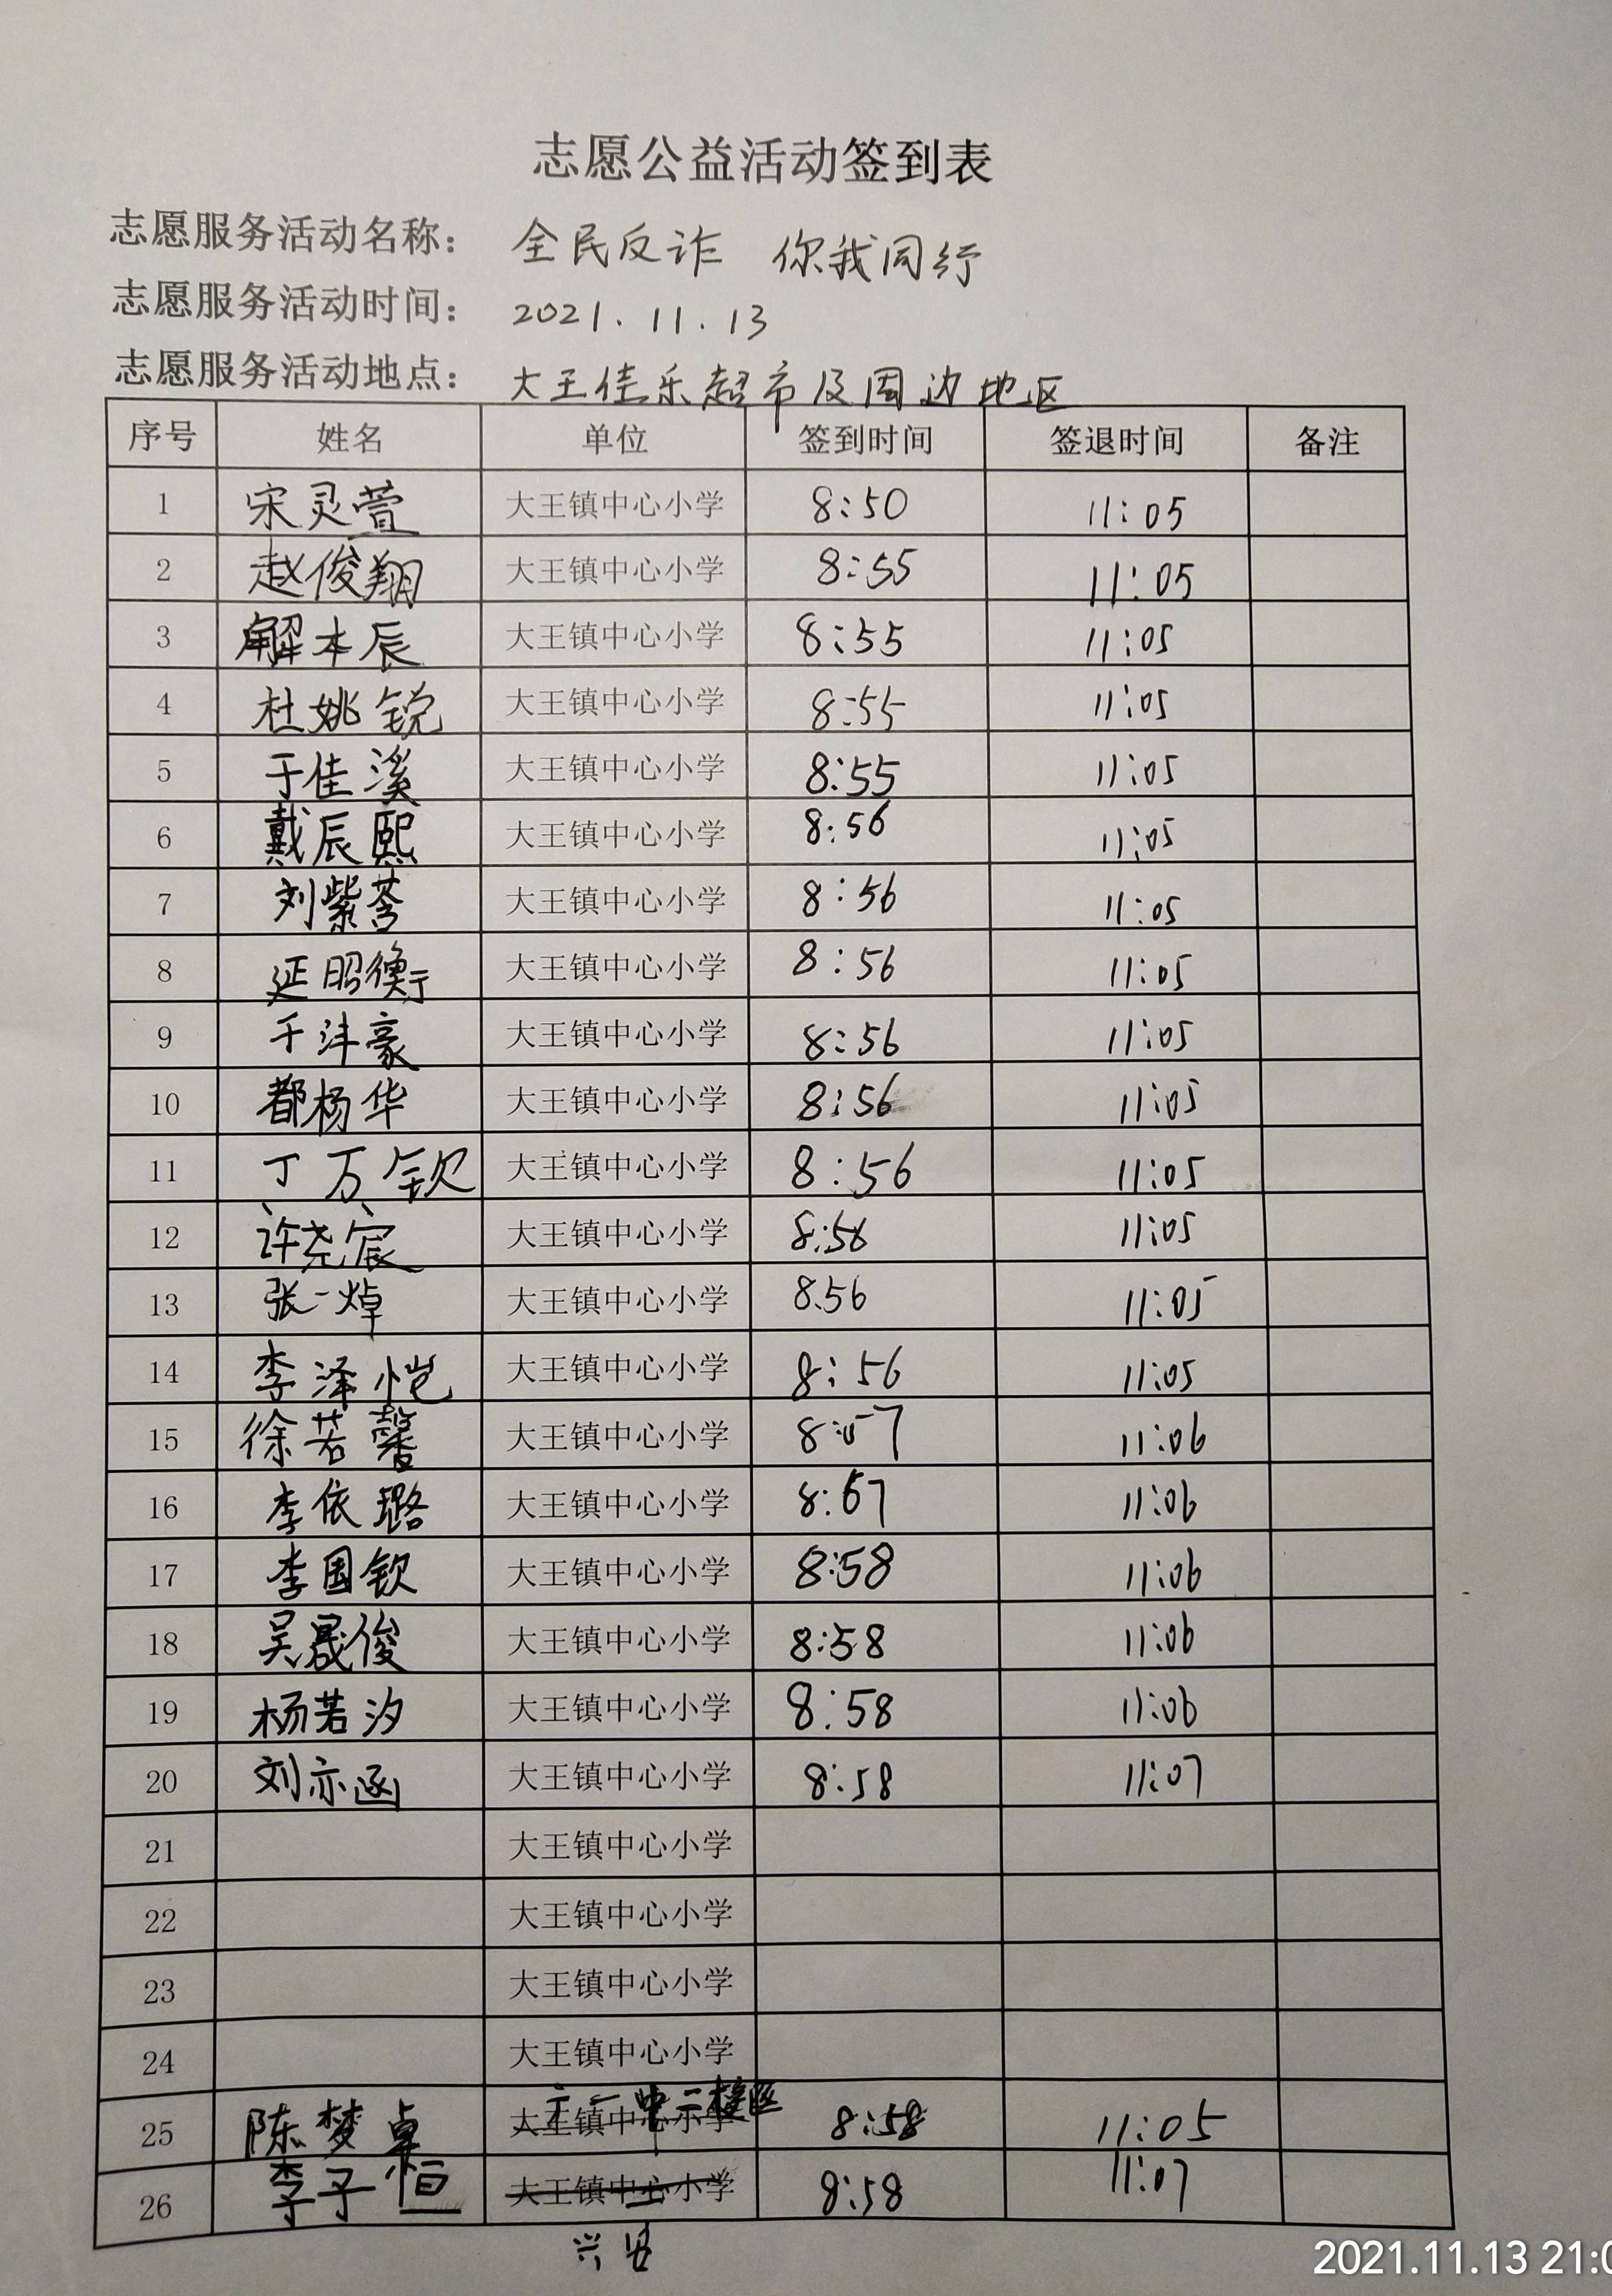 志愿公益活动签到表
志愿服务活动名称： 全民反诈 你我同行
志愿服务活动时间： 2021.11.13
志愿服务活动地点： 大王佳乐超市及周边地区
序号 姓名 单位 签到时间 签退时间 备注
1 宋灵萱 大王镇中心小学 8:50 11:05
2 赵俊翔 大王镇中心小学 8:55 11:05
3 解本辰 大王镇中心小学 8:55 11:05
4 杜姚锐 大王镇中心小学 8:55 11:05
5 于佳溪 大王镇中心小学 8:55 11:05
6 戴辰熙 大王镇中心小学 8:56 11:05
7 刘紫莟 大王镇中心小学 8:56 11:05
8 延昭衡 大王镇中心小学 8:56 11:05
9 于沣豪 大王镇中心小学 8:56 11:05
10 都杨华 大王镇中心小学 8:56 11:05
11 丁万钦 大王镇中心小学 8:56 11:05
12 许尧宸 大王镇中心小学 8:56 11:05
13 张一焯 大王镇中心小学 8.56 11:05
14 李泽恺 大王镇中心小学 8:56 11:05
15 徐若馨 大王镇中心小学 8:57 11:06
16 李依璐 大王镇中心小学 8:57 11:06
17 李国钦 大王镇中心小学 8:58 11:06
18 吴晟俊 大王镇中心小学 8:58 11:06
19 杨若汐 大王镇中心小学 8:58 11:06
20 刘亦函 大王镇中心小学 8:58 11:07
21 大王镇中心小学
22 大王镇中心小学
23 大王镇中心小学
24 大王镇中心小学
一中二校区
25 陈梦卓 大王镇中心小学 8:58 11:05
26 李子恒 大王镇中心小学 8:58 11:07
兴安
2021.11.13 21:0